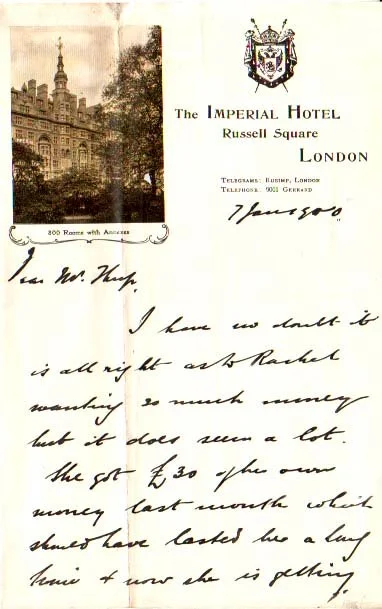 The Imperial Hotel
Russell Square
London
Telegrams: Rusimp, London
Telephone: 9001 Gerrard
800 Rooms with Annexes
7 Jan 1900
Dear Mr.
I have no doubt it
is all right as to Rachel
wanting so much money
but it does seem a lot.
She got £30 of her own
money last month which
should have lasted her a long
time & now she is getting